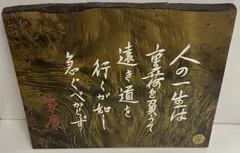 人の一生は
重荷を負って
遠き道を
行くが如し
急ぐべからず
家康